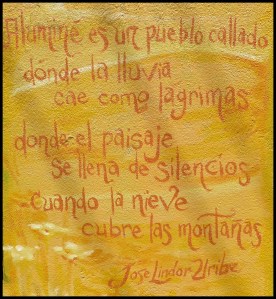 Aluminé es un pueblo callado
dónde la lluvia
cae como lagrimas
donde el paisaje
se llena de silencios
cuando la nieve
cubre las montañas
Jose Lindor Uribe